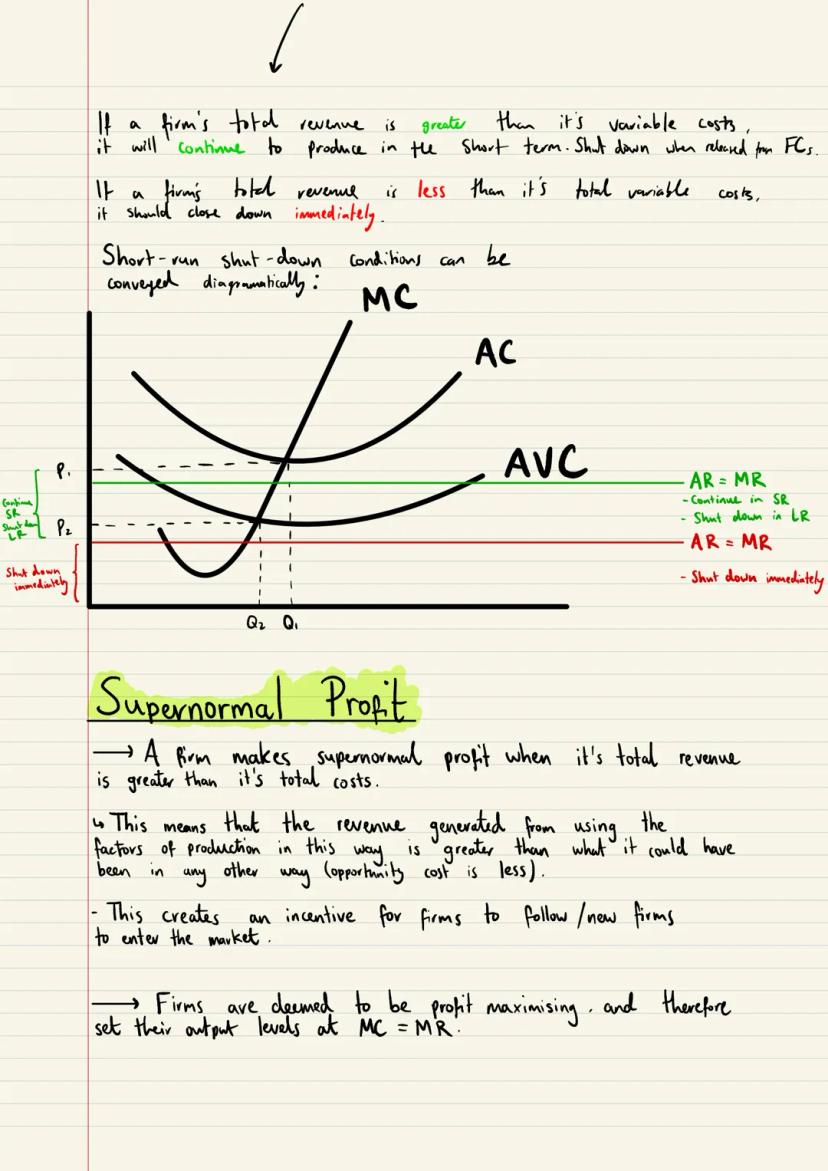 If a firm's total revenue is greater than it's variable costs,
it will continue to produce in the short term. Shut down when released from FCs.
If a firm's total revenue is less than it's total variable costs,
it should close down immediately.
Short-run shut-down conditions can be
conveyed diagramatically:
MC
AC
AVC
P1
Continue
SR
Shut down
LR
P2
AR = MR
- Continue in SR
- Shut down in LR
AR = MR
- Shut down immediately
Shut down
immediately
Q2 Q1
Supernormal Profit
→ A firm makes supernormal profit when it's total revenue
is greater than it's total costs.
↳ This means that the revenue generated from using the
factors of production in this way is greater than what it could have
been in any other way (opportunity cost is less).
- This creates an incentive for firms to follow/new firms
to enter the market.
→ Firms are deemed to be profit maximising. and therefore
set their output levels at MC = MR.